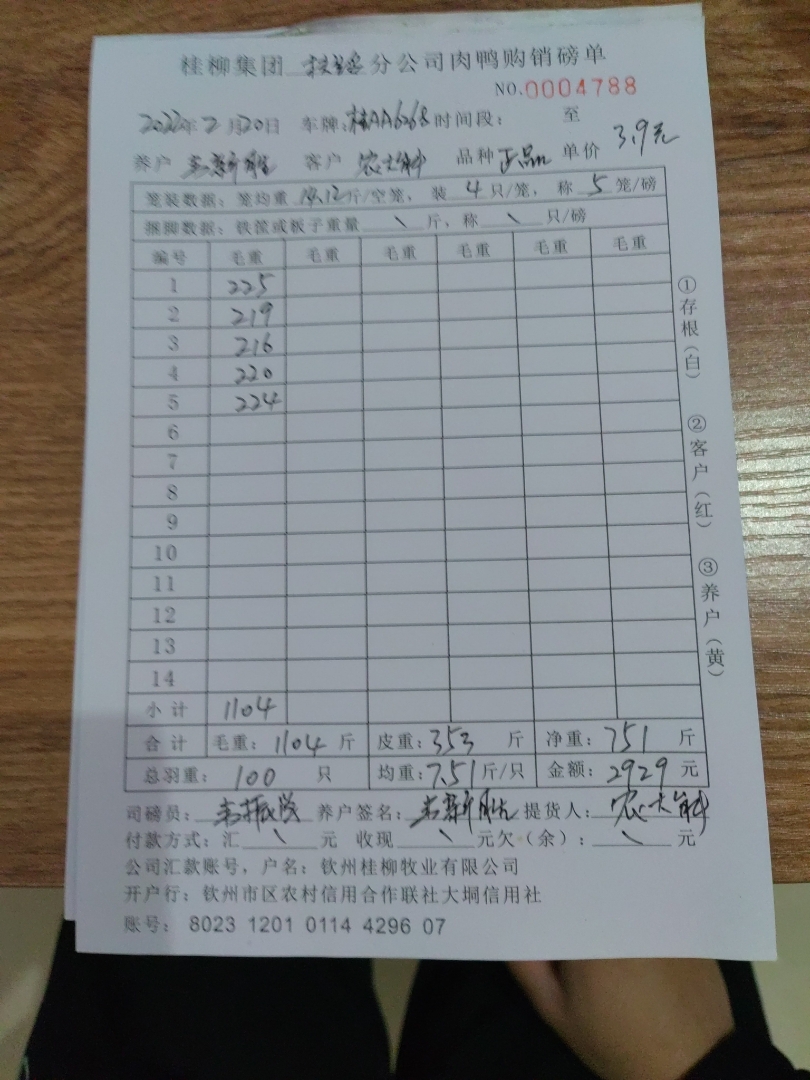 桂柳集团 分公司肉鸭购销磅单
NO.0004788
2022年2月20日 车牌:桂AA6268 时间段: 至
养户 韦新胜 客户 农大新 品种 正品 单价 3.9元
笼装数据: 笼均重 14.12斤/空笼, 装 4 只/笼, 称 5 笼/磅
捆脚数据: 铁筐或板子重量 \ 斤, 称 \ 只/磅
编号 毛重 毛重 毛重 毛重 毛重 毛重
1 225
2 219
3 216
4 220
5 224
6
7
8
9
10
11
12
13
14
小计 1104
合计 毛重: 1104 斤 皮重: 353 斤 净重: 751 斤
总羽重: 100 只 均重: 7.51 斤/只 金额: 2929 元
司磅员: 养户签名: 韦新胜 提货人: 农大新
付款方式: 汇 \ 元 收现 \ 元欠(余): \ 元
公司汇款账号, 户名: 钦州桂柳牧业有限公司
开户行: 钦州市区农村信用合作联社大垌信用社
账号: 8023 1201 0114 4296 07
①存根(白)
②客户(红)
③养户(黄)